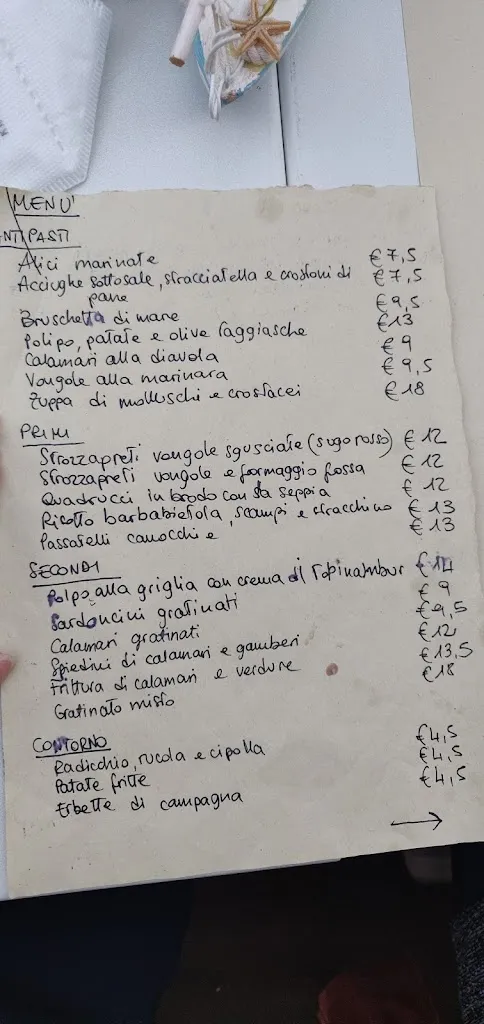 MENU'
ANTIPASTI
Alici marinate € 7,5
Acciughe sottosale, stracciatella e crostoni di € 7,5
pane
Bruschetta di mare € 9,5
Polipo, patate e olive taggiasche € 13
Calamari alla diavola € 9
Vongole alla marinara € 9,5
Zuppa di molluschi e crostacei € 18
PRIMI
Strozzapreti vongole sgusciate (sugo rosso) € 12
Strozzapreti vongole e formaggio fossa € 12
Quadrucci in brodo con la seppia € 12
Risotto barbabietola, scampi e stracchino € 13
Passatelli canocchie € 13
SECONDI
Polpo alla griglia con crema di Topinambur € 14
Sardoncini gratinati € 9
Calamari gratinati € 9,5
Spiedini di calamari e gamberi € 12
Frittura di calamari e verdure € 13,5
Gratinato misto € 18
CONTORNO
Radicchio, rucola e cipolla € 4,5
Patate fritte € 4,5
Erbette di campagna € 4,5